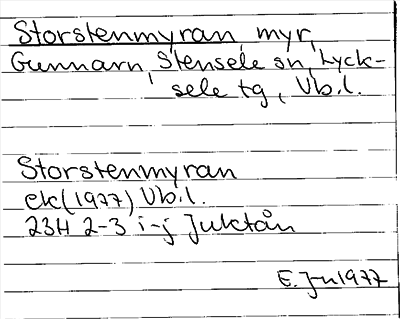 Storstenmyran, myr,
Gunnarn, Stensele sn, Lyck-
sele tg, Vb.l.
Storstenmyran
ek(1977) Vb.l.
23H 2-3 i-j Juktån
E. Jn 1977